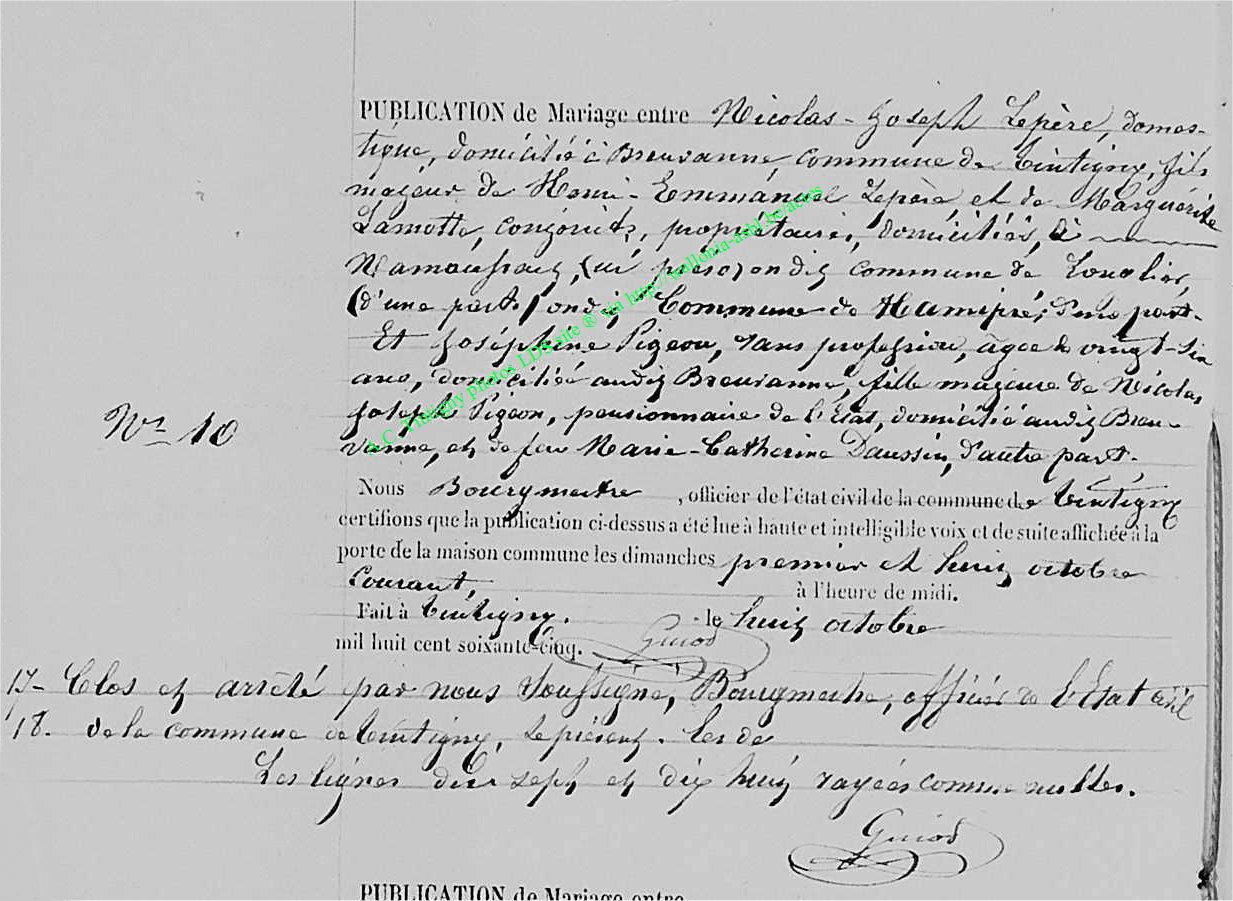 PUBLICATION de Mariage entre Nicolas-Joseph Lepère, domes-
tique, domicilié à Breuvanne commune de Tintigny, fils
majeur de Henri-Emmanuel Lepère, et de Marguerite
Lamotte, conjoints, propriétaires, domiciliés, à
Namoussart, (ci présent) on dit commune de
(d'une part) ondit, Commune de Hamipré, d'une part.
Et Joséphine Pigeon, sans profession, agée de vingt-six
ans, domiciliée audit Breuvanne, fille majeure de Nicolas
Joseph Pigeon, pensionnaire de l'État, domicilié audit Breu-
vanne, et de feu Marie-Catherine Daussin, d'autre part.
Nº 10
Nous Bourgmestre , officier de l'état civil de la commune de Tintigny
certifions que la publication ci-dessus a été lue à haute et intelligible voix et de suite affichée à la
porte de la maison commune les dimanches premier et huit octobre
Courant, à l'heure de midi.
Fait à Tintigny. le huit octobre
mil huit cent soixante-cinq. Guiod
17- Clos et arrêté par nous soussigné, Bourgmestre, officier de l'État civil
18. de la commune de Tintigny, le présent.
Les lignes dix sept et dix huit rayées comme nulles.
Guiod
PUBLICATION de Mariage entre
A.C. Tintigny photos LDS site ® via http://wallonia-asbl.be/actes